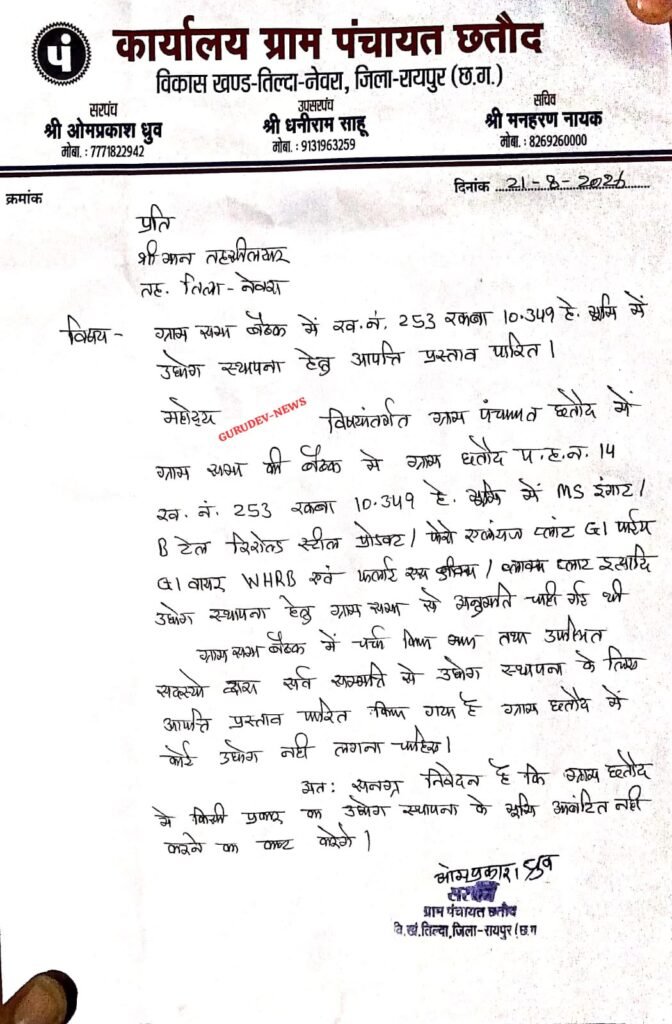 पं कार्यालय ग्राम पंचायत छतौद
विकास खण्ड-तिल्दा-नेवरा, जिला-रायपुर (छ.ग.)
सरपंच
श्री ओमप्रकाश ध्रुव
मोबा. : 7771822942
उपसरपंच
श्री धनीराम साहू
मोबा. : 9131963259
सचिव
श्री मनहरण नायक
मोबा. : 8269260000
क्रमांक
दिनांक 21-8-2026
प्रति
श्री मान तहसीलदार
तह. तिल्दा - नेवरा
विषय - ग्राम सभा बैठक में ख.नं. 253 रकबा 10.349 हे. भूमि में
उद्योग स्थापना हेतु आपत्ति प्रस्ताव पारित।
महोदय
GURUDEV-NEWS
विषयांतर्गत ग्राम पंचायत छतौद में
ग्राम सभा की बैठक में ग्राम छतौद प.ह.न. 14
ख. नं. 253 रकबा 10.349 हे. भूमि में MS इंगाट /
स्टील प्रोडक्ट / प्लांट GI पाईप
GI वायर WHRB एवं प्लांट इत्यादि
उद्योग स्थापना हेतु ग्राम सभा से अनुमति चाही गई थी
ग्राम सभा बैठक में चर्चा किया गया तथा उपस्थित
सदस्यो द्वारा सर्व सम्मति से उद्योग स्थापना के लिए
आपत्ति प्रस्ताव पारित किया गया है ग्राम छतौद में
कोई उद्योग नही लगना चाहिए।
अतः सनम्र निवेदन है कि ग्राम छतौद
मे किसी प्रकार का उद्योग स्थापना के भूमि आबंटित नही
करने का कष्ट करेंगे।
ओमप्रकाश ध्रुव
सरपंच
ग्राम पंचायत छतौद
वि.खं.तिल्दा,जिला-रायपुर (छ.ग